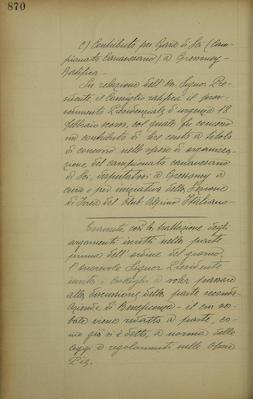 870
c) Contributo per Gare di Sci (Cam-
pionato Canavesano) a Gressoney -
Ratifica -
Su relazione dell'On. Signor Pre-
sidente, il Consiglio ratifica il prov-
vedimento Presidenziale d'urgenza 18
febbraio scorso, col quale fu concesso
un contributo di lire cento a titolo
di concorso nelle spese di organizza-
zione del campionato canavesano
di sci, disputatosi a Gressoney a
cura e per iniziativa della Sezione
di Ivrea del Club Alpino Italiano.
Esaurita così la trattazione degli
argomenti iscritti nella parte
prima dell'ordine del giorno,
l'onorevole Signor Presidente
invita i Consiglieri a voler passare
alla discussione della parte
di Beneficenza - il cui ver-
bale viene redatto a parte, co-
me già si è detto, a norma delle
leggi e regolamenti sulle Opere
Pie.